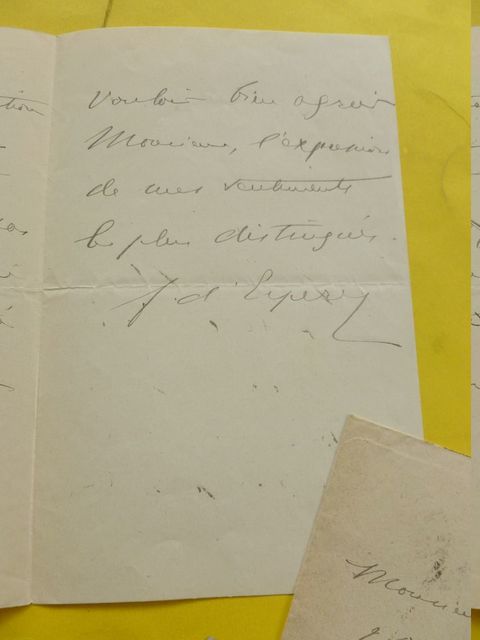 vouloir bien agréer
Monsieur, l'expression
de mes sentiments
les plus distingués.
J. d'
Monsieur